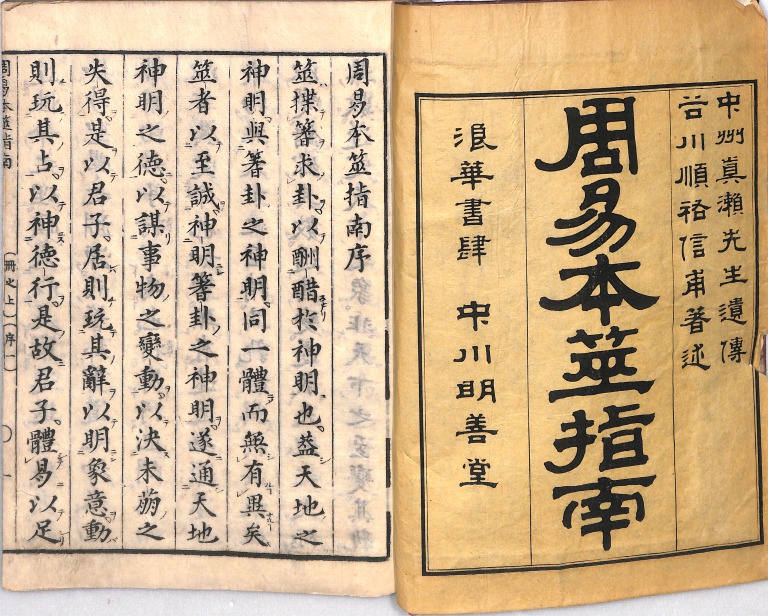 中州眞瀨先生遺傳
谷川順祐信甫著述
周易本筮指南
浪華書肆 中川明善堂
周易本筮指南序
筮揲蓍求卦以酬醋於神明也蓋天地之
神明與蓍卦之神明同一體而無有異矣
筮者以至誠神明蓍卦之神明遂通天地
神明之德以謀事物之變動以決未萌之
失得是以君子居則玩其辭以明象意動
則玩其占以神德行是故君子體易以足
周易本筮指南 (冊之上)(序一)